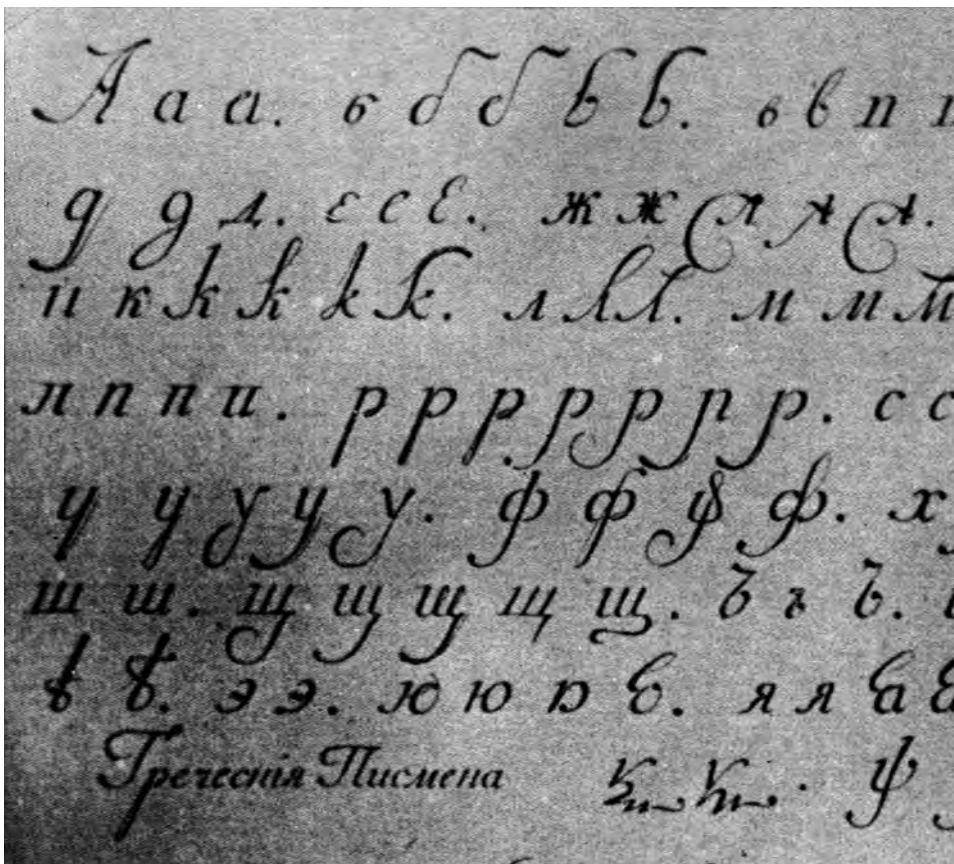 А а а. б б б б б. в в п п
д д д. е е е. ж ж ѕ ѕ ѕ.
и к k k k k. л л л. м м м
л п п п. р р р р р р р. с с
у у у у у. ф ф ф ф. х
ш ш. щ щ щ щ щ. ъ ъ ъ.
ѣ ѣ. э э. ю ю ю ю. я я
Греческія Писмена ѱ